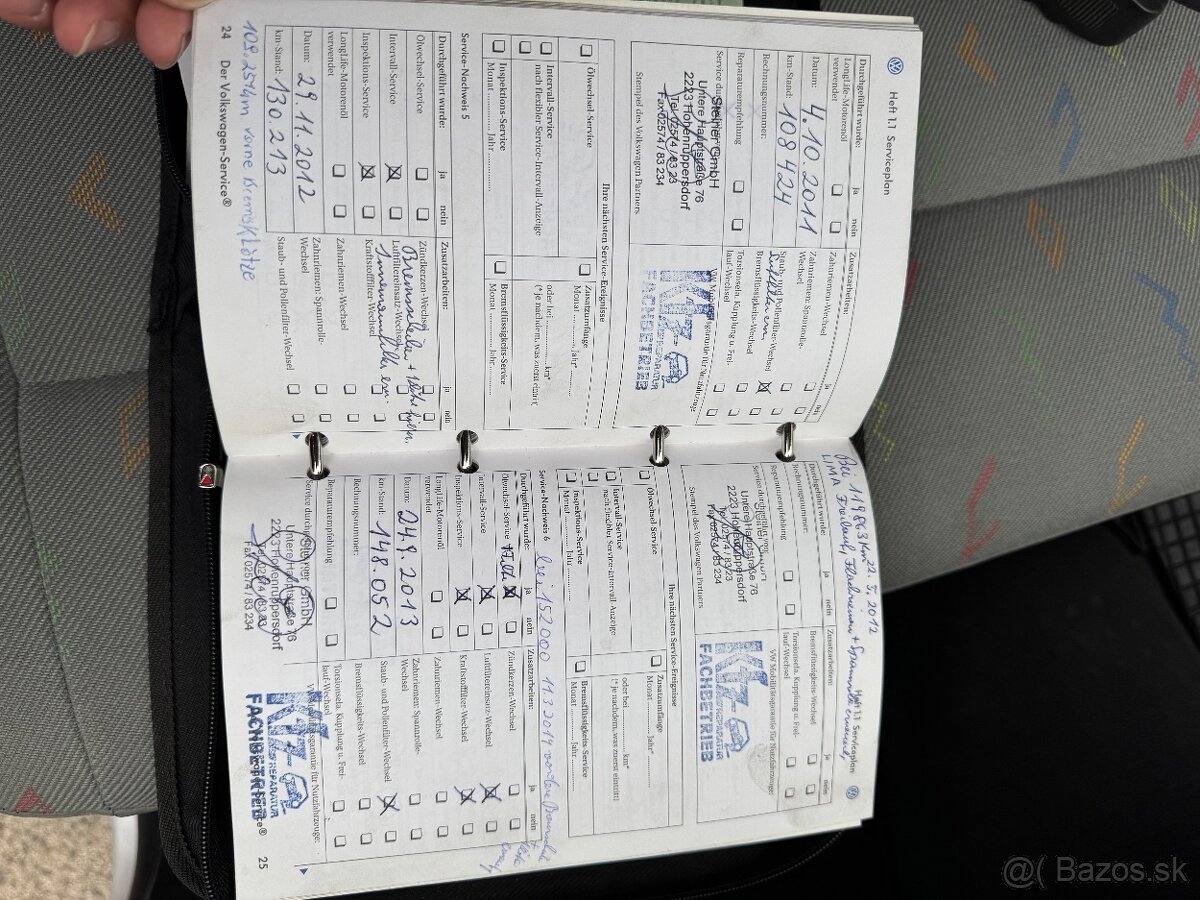 Heft 1.1 Serviceplan
Durchgeführt wurde: ja nein
LongLife-Motorenöl verwendet
Datum: 4.10.2011
km-Stand: 108424
Rechnungsnummer:
Reparaturempfehlung
Service durch
Steiner GmbH
Untere Hauptstraße 76
2223 Hohenruppersdorf
Tel. 02574 / 83 23
Fax 02574 / 83 234
Stempel des Volkswagen Partners
Zusatzarbeiten: ja nein
Zahnriemen-Wechsel
Zahnriemen: Spannrolle-
Wechsel
Staub- und Pollenfilter-Wechsel
Bremsflüssigkeits-Wechsel
Torsionsela. Kupplung u. Frei-
lauf-Wechsel
KFZ-
REPARATUR
FACHBETRIEB
Ihre nächsten Service-Ereignisse
Ölwechsel-Service
Intervall-Service
nach flexibler Service-Intervall-Anzeige
Inspektions-Service
Monat Jahr
Zusatzumfänge
Monat Jahr*
oder bei km*
(* je nachdem, was zuerst eintritt)
Bremsflüssigkeits-Service
Monat Jahr
Service-Nachweis 5
Durchgeführt wurde: ja nein
Ölwechsel-Service
Intervall-Service
Inspektions-Service
LongLife-Motorenöl
verwendet
Datum: 29.11.2012
km-Stand: 130 213
Zusatzarbeiten: ja nein
Zündkerzen-Wechsel
Luftfiltereinsatz-Wechsel
Kraftstofffilter-Wechsel
Zahnriemen-Wechsel
Zahnriemen: Spannrolle-
Wechsel
Staub- und Pollenfilter-Wechsel
24 Der Volkswagen-Service®
109.254km vorne Bremsklötze
Bei 119863 Km 22.5.2012
LIMA Freilauf, Flachriemen + Spannrolle erneuert
Heft 1.1 Serviceplan
Durchgeführt wurde: ja nein
Rechnungsnummer:
Reparaturempfehlung
Untere Hauptstraße 76
2223 Hohenruppersdorf
Tel. 02574 / 83 23
Fax 02574 / 83 234
Stempel des Volkswagen Partners
Zusatzarbeiten: ja nein
Bremsflüssigkeits-Wechsel
Torsionsela. Kupplung u. Frei-
lauf-Wechsel
VW Mobilitätsgarantie für Nutzfahrzeuge:
KFZ-
REPARATUR
FACHBETRIEB
Ihre nächsten Service-Ereignisse
Ölwechsel-Service
Intervall-Service
nach flexibler Service-Intervall-Anzeige
Inspektions-Service
Monat Jahr
Zusatzumfänge
Monat Jahr*
oder bei km*
(* je nachdem, was zuerst eintritt)
Bremsflüssigkeits-Service
Monat Jahr
Service-Nachweis 6
bei 152000 11.3.2014
Durchgeführt wurde: ja nein
Ölwechsel-Service
Intervall-Service
Inspektions-Service
LongLife-Motorenöl
verwendet
Datum: 24.9.2013
km-Stand: 148.052
Rechnungsnummer:
Reparaturempfehlung
Service durch
Steiner GmbH
Untere Hauptstraße 76
2223 Hohenruppersdorf
Tel. 02574 / 83 23
Fax 02574 / 83 234
Zusatzarbeiten: ja nein
Zündkerzen-Wechsel
Luftfiltereinsatz-Wechsel
Kraftstofffilter-Wechsel
Zahnriemen-Wechsel
Zahnriemen: Spannrolle-
Wechsel
Staub- und Pollenfilter-Wechsel
Bremsflüssigkeits-Wechsel
Torsionsela. Kupplung u. Frei-
lauf-Wechsel
KFZ-
REPARATUR
FACHBETRIEB
25
@( Bazos.sk